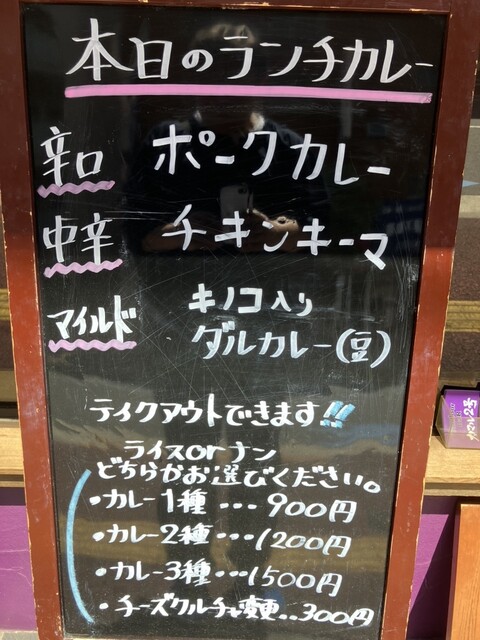 本日のランチカレー
辛口 ポークカレー
中辛 チキンキーマ
マイルド キノコ入り
ダルカレー(豆)
テイクアウトできます!!
ライスorナン
どちらかお選びください。
・カレー1種…900円
・カレー2種…1200円
・カレー3種…1500円
・チーズクルチャ変更..300円
カマル2号